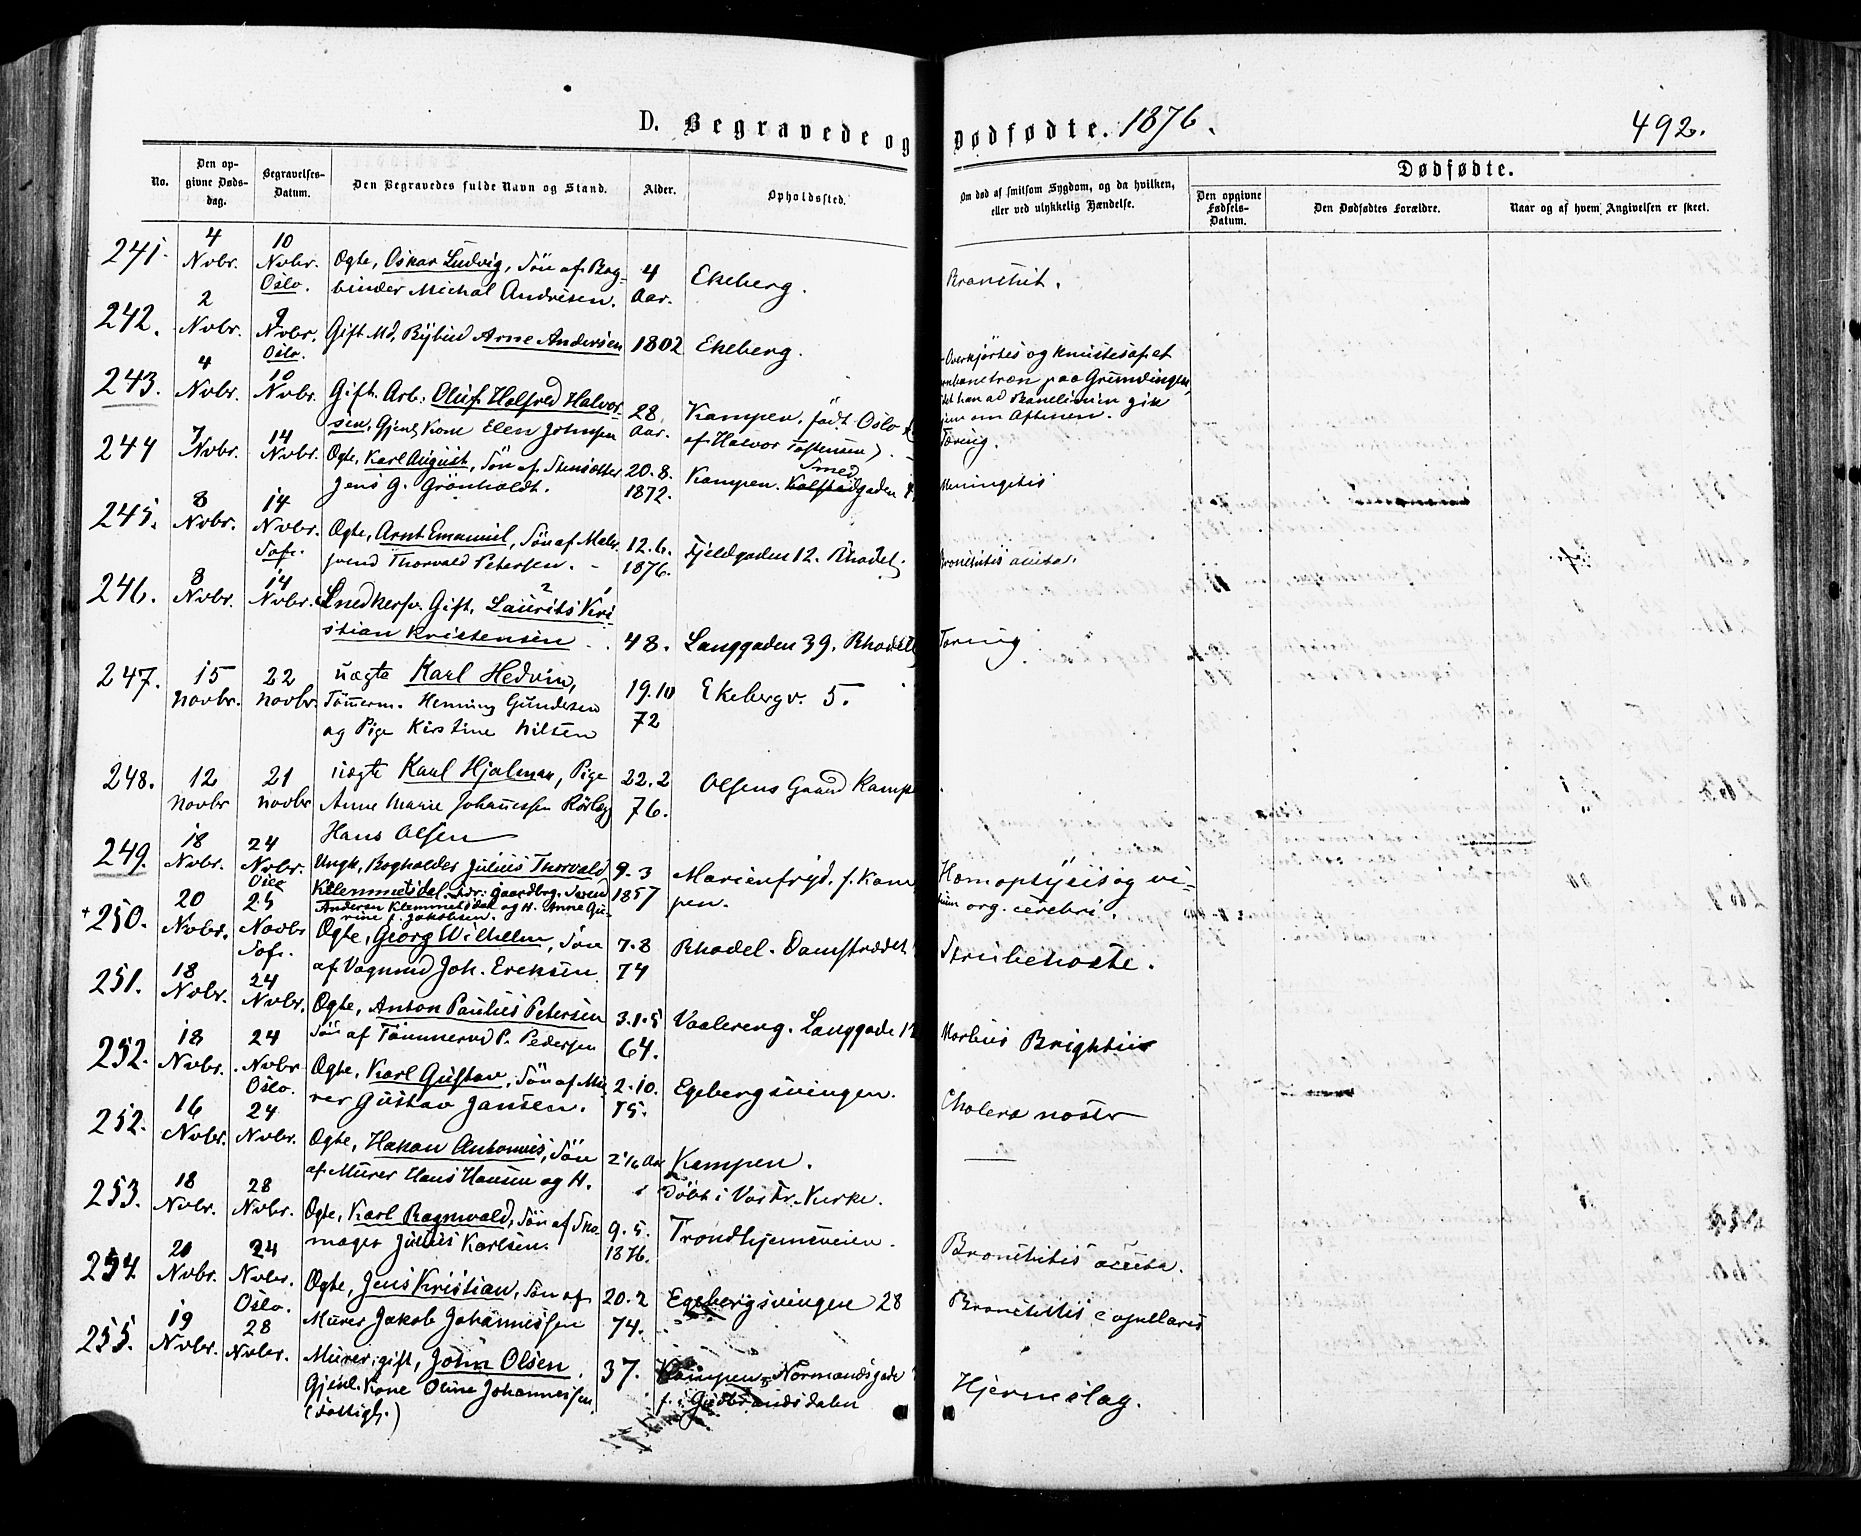 D. Begravede og Dødfødte. 1876. 492.
No.
Den opgivne Dødsdag.
Begravelses-Datum.
Den Begravedes fulde Navn og Stand.
Alder.
Opholdssted.
Om død af smitsom Sygdom, og da hvilken, eller ved ulykkelig Hændelse.
Dødfødte.
Den opgivne Fødsels-Datum.
Den Dødfødtes Forældre.
Naar og af hvem Angivelsen er skeet.
241. 4 Novbr. 10 Novbr. Oslo. Ægte, Oskar Ludvig, Søn af Bog- 4 Aar. Ekeberg. Bronchit.
binder Michal Andresen.
242. 2 Novbr. 9 Novbr. Oslo. Gift Md, Bÿbud Arne Andersen 1802 Ekeberg. Overkjørtes og knustes af et
paa Grundingen
han ad Banelinien gik
om Aftenen.
243. 4 Novbr. 10 Novbr. Gift. Arb. Oluf Halfred Halvor- 28 Aar. Kampen, født Oslo
sen, Gjenl. Kone Elen Johnsen af Halvor Tostensen). Tæring.
244 7 Novbr. 14 Novbr. Ægte, Karl August, Søn af 20.8. 1872. Kampen. Smed Kolstadgaden Meningitis
Jens G. Grönholdt.
245. 8 Novbr. 14 Novbr. Tøf. Ægte, Arnt Emanuel, Søn af Maler- 12.6. 1876. Fjeldgaden 12. Rhodel. Bronchitis acuta.
svend Thorvald Petersen.
246. 8 Novbr. 14 Novbr. Snedkersv. Gift, Laurits Kri- 48. Langgaden 39. Rhodel Tæring
stian Kristensen
247. 15 Novbr. 22 Novbr. uægte Karl Hedvin, 19.10 72 Ekebergv. 5.
Tömmerm. Henning Gundersen
og Pige Kirstine Nilsen
248. 12 Novbr 21 Novbr uægte Karl Hjalmar, Pige 22.2 76. Olsens Gaard Kamp
Anne Marie Johannessen Rörlegg
Hans Olsen
249. 18 Novbr. 24 Novbr. Oslo Ungk, Bogholder Julius Thorvald 9.3 1857 Marienfryd. f. Kam- Hæmoptysis og vi-
Klemmetsdal. For: Gaardbrg. Søren pen. tium org. cerebri.
Andersen Klemmetsdal og H. Anne Gu-
rine f. Jakobsen.
+250. 20 Novbr. 25 Novbr Tøf. Ægte, Georg Wilhelm, Søn 7.8 74 Rhodel. Damstrædet Strubehoste.
af Vognmd Joh. Ereksen
251. 18 Novbr. 24 Novbr. Ægte, Anton Paulius Petersen 3.1.5 64. Vaalereng. Langgade Morbus Brightii
Søn af Tömmermd P. Pedersen
252. 18 Novbr. 24 Novbr Oslo. Ægte, Karl Gustav, Søn af Mu- 2.10. 75. Egebergsvingen. Cholera nostr
rer Gustav Jansen.
252. 16 Novbr. 24 Novbr. Ægte, Hakon Antonius, Søn 2 1/6 Aar Kampen.
af Murer Hans Hansen og H. Döbt i Vor Fr. Kirke.
253. 18 Novbr. 28 Novbr. Ægte, Karl Ragnvald, Søn af Sko- 9.5. 1876. Trondhjemsveien. Bronchitis acuta.
mager Julius Karlsen.
254 20 Novbr. 24 Novbr. Oslo. Ægte, Jens Kristian, Søn af 20.2 74. Egebergsvingen 28 Bronchitis capillaris
Murer Jakob Johannessen
255. 19 Novbr. 28 Novbr. Murer, gift, John Olsen 37. Kampen, Normandsgade Hjerneslag.
Gjenl. Kone Oline Johannessen f. i Gudbrandsdalen
(fattigh.)